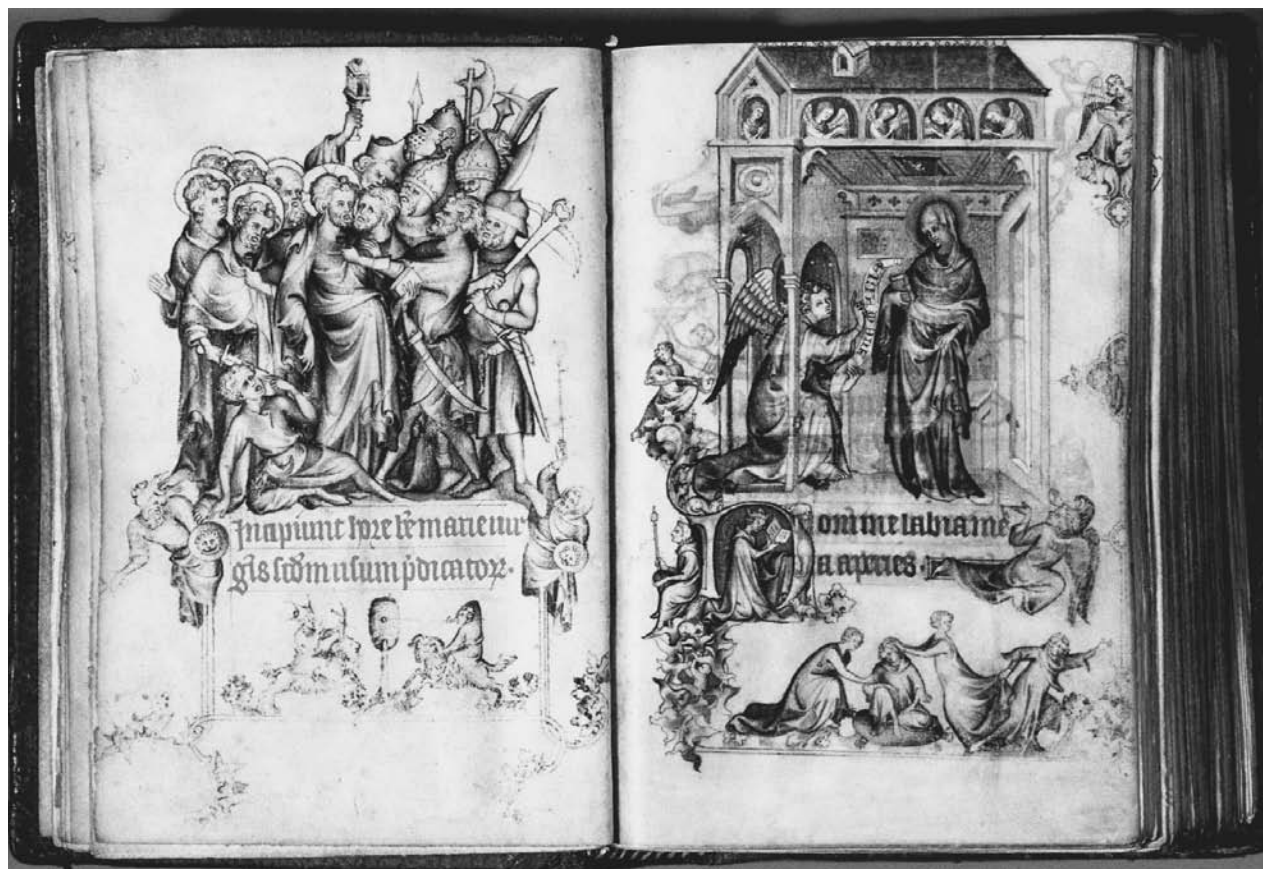 Incipiunt hore be marie uir
ginis scdm usum predicatorum.
Domine labia me
a aperies.